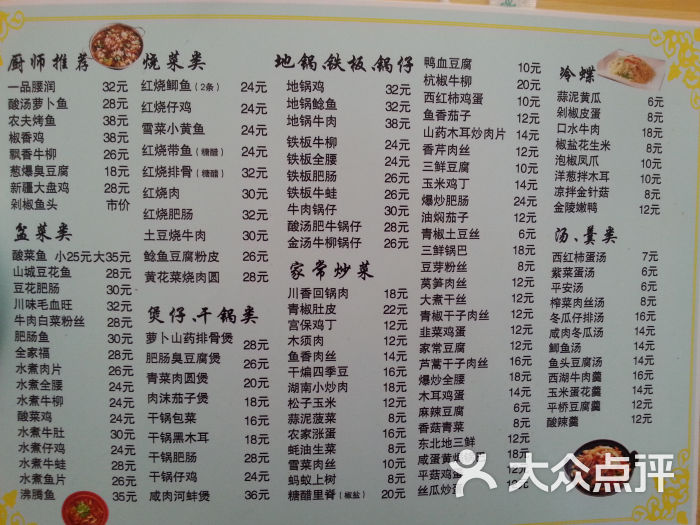 厨师推荐
一品腰润 32元
酸汤萝卜鱼 28元
农夫烤鱼 38元
椒香鸡 38元
飘香牛柳 26元
葱爆臭豆腐 18元
新疆大盘鸡 28元
剁椒鱼头 市价
盆菜类
酸菜鱼 小25元大35元
山城豆花鱼 28元
豆花肥肠 30元
川味毛血旺 32元
牛肉白菜粉丝 28元
肥肠鱼 30元
全家福 28元
水煮肉片 26元
水煮全腰 24元
水煮牛柳 24元
酸菜鸡 24元
水煮牛肚 30元
水煮仔鸡 24元
水煮牛蛙 28元
水煮鱼片 26元
沸腾鱼 35元
烧菜类
红烧鲫鱼(2条) 24元
红烧仔鸡 24元
雪菜小黄鱼 24元
红烧带鱼(糖醋) 24元
红烧排骨(糖醋) 32元
红烧肉 30元
红烧肥肠 32元
土豆烧牛肉 30元
鲶鱼豆腐粉皮 26元
黄花菜烧肉圆 28元
煲仔、干锅类
萝卜山药排骨煲 28元
肥肠臭豆腐煲 28元
青菜肉圆煲 20元
肉沫茄子煲 18元
干锅包菜 16元
干锅黑木耳 18元
干锅肥肠 28元
干锅仔鸡 24元
咸肉河蚌煲 36元
地锅、铁板、锅仔
地锅鸡 32元
地锅鲶鱼 32元
地锅牛肉 38元
铁板牛柳 24元
铁板全腰 24元
铁板肥肠 26元
铁板牛蛙 26元
牛肉锅仔 30元
酸汤肥牛锅仔 28元
金汤牛柳锅仔 26元
家常炒菜
川香回锅肉 18元
青椒肚皮 22元
宫保鸡丁 12元
木须肉 12元
鱼香肉丝 14元
干煸四季豆 16元
湖南小炒肉 18元
松子玉米 12元
蒜泥菠菜 8元
农家涨蛋 16元
蚝油生菜 8元
雪菜肉丝 10元
蚂蚁上树 8元
糖醋里脊(椒盐) 20元
鸭血豆腐 10元
杭椒牛柳 20元
西红柿鸡蛋 10元
鱼香茄子 12元
山药木耳炒肉片 14元
香芹肉丝 12元
三鲜豆腐 10元
玉米鸡丁 14元
爆炒肥肠 24元
油焖茄子 12元
青椒土豆丝 6元
三鲜锅巴 18元
豆芽粉丝 8元
莴笋肉丝 12元
大煮干丝 12元
青椒干子肉丝 12元
韭菜鸡蛋 12元
家常豆腐 12元
芦蒿干子肉丝 16元
爆炒全腰 18元
木耳鸡蛋 14元
麻辣豆腐 6元
香菇青菜 8元
东北地三鲜 12元
咸蛋黄 18元
平菇鸡蛋
丝瓜炒蛋
冷蝶
蒜泥黄瓜 6元
剁椒皮蛋 8元
口水牛肉 18元
椒盐花生米 8元
泡椒凤爪 10元
洋葱拌木耳 10元
凉拌金针菇 8元
金陵嫩鸭 12元
汤、羹类
西红柿蛋汤 7元
紫菜蛋汤 6元
平安汤 6元
榨菜肉丝汤 8元
冬瓜仔排汤 16元
咸肉冬瓜汤 14元
鲫鱼汤 14元
鱼头豆腐汤 18元
西湖牛肉羹 16元
玉米蛋花羹 14元
平桥豆腐羹 12元
酸辣羹 12元
大众点评